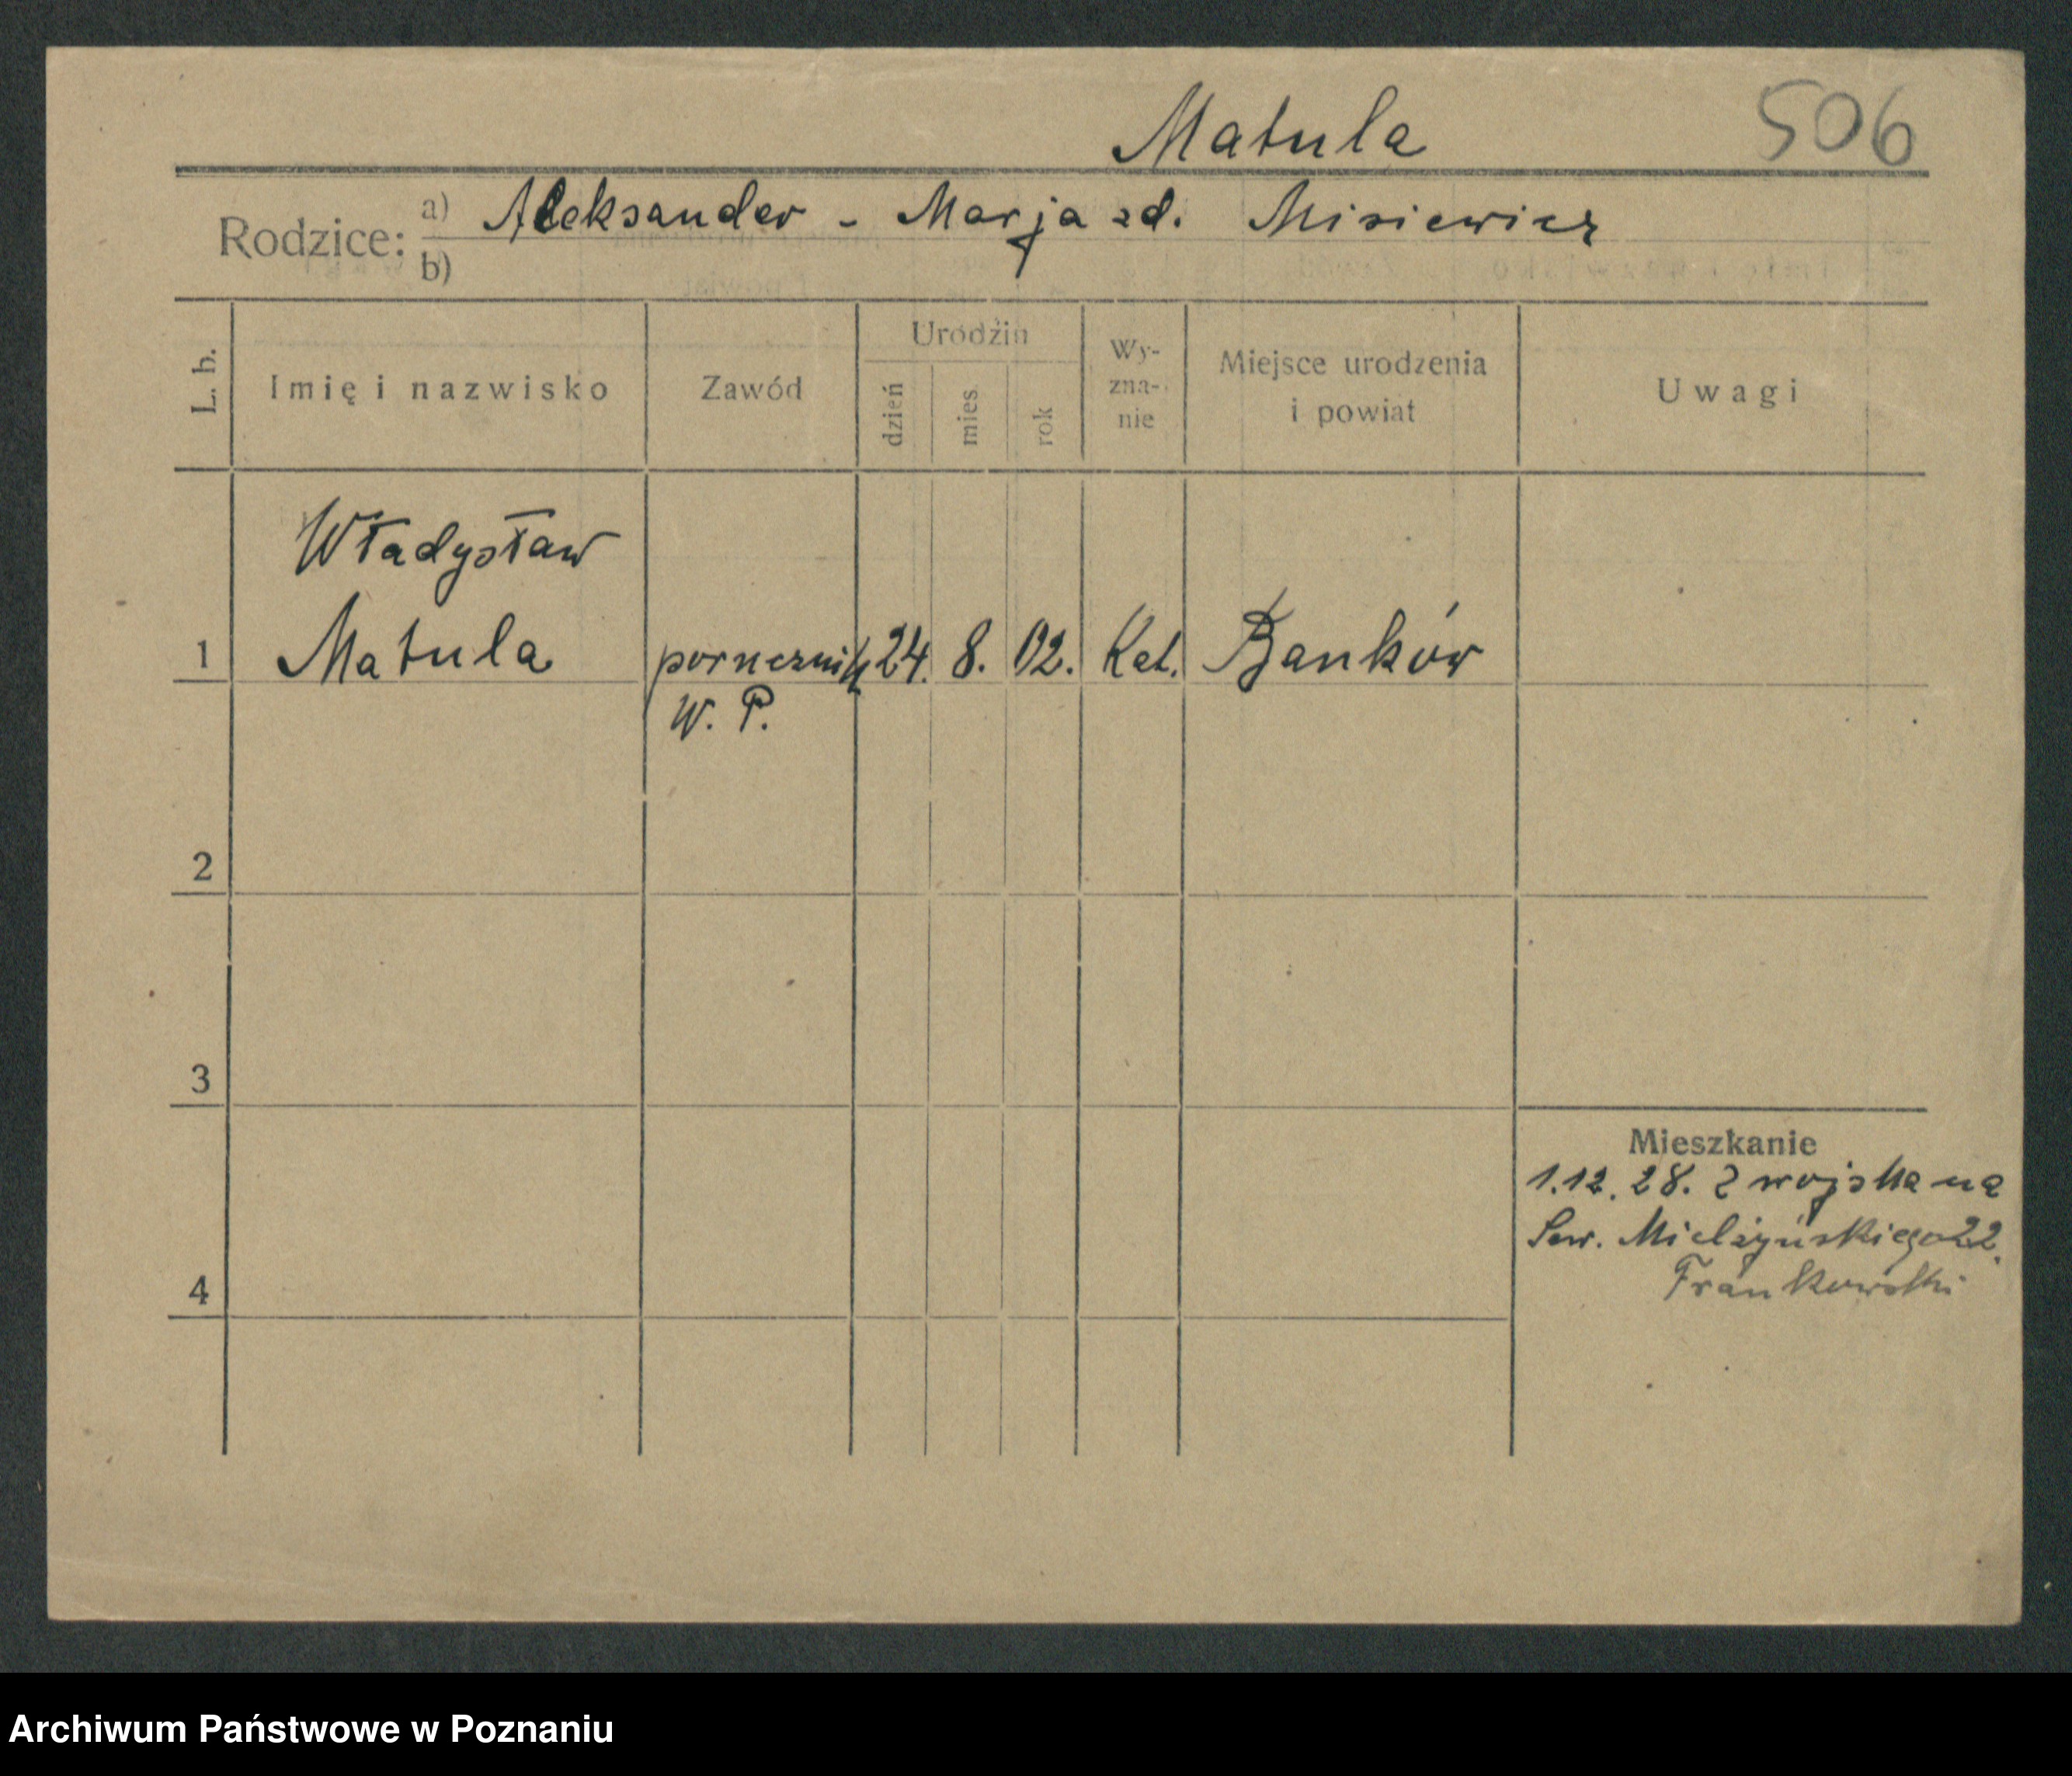 Matula 506
Rodzice: a) Aleksander - Marja zd. Misiewicz
b)
L. b. Imię i nazwisko Zawód Urodzin dzień mies rok Wy-zna-nie Miejsce urodzenia i powiat Uwagi
Władysław
1 Matula porucznik 24. 8. 02. Kat. Banków
W. P.
2
3
Mieszkanie
1.12.28. z wojska na
Sew. Mielżyńskiego 22.
4 Frankowski
Archiwum Państwowe w Poznaniu